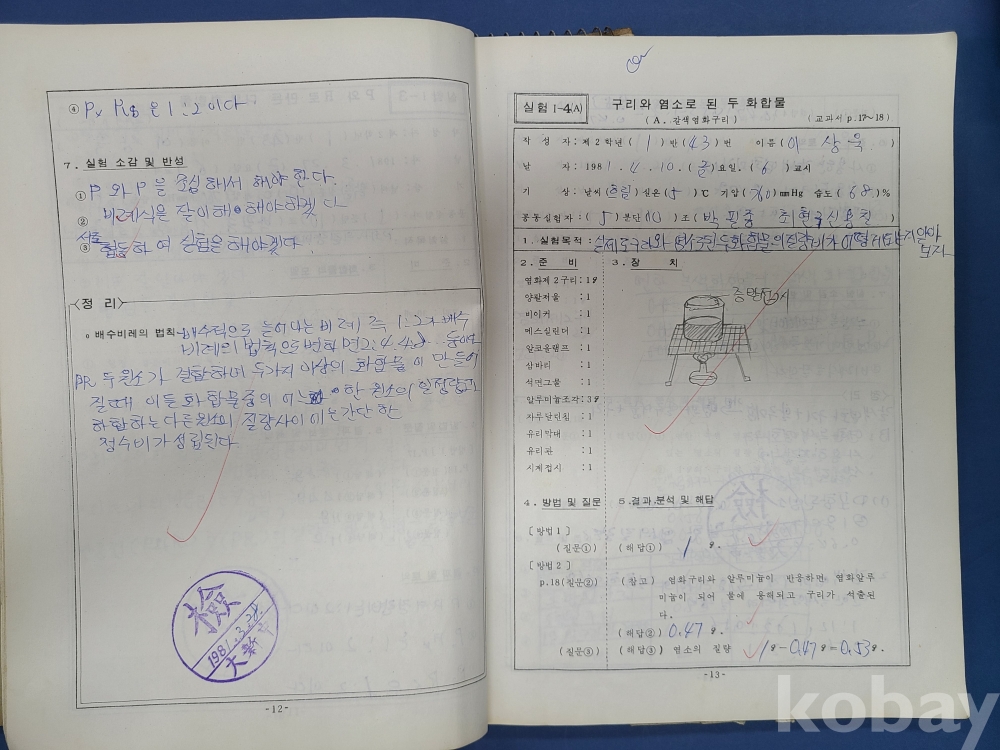 ④ P x 은 1 : 2 이다
7. 실험 소감 및 반성
① P 와 P 을 중심 해서 해야 한다.
② 비례식을 잘이해 해야하겠 다
서로
③ 협동하 여 실험을 해야겠다
<정 리>
o 배수비례의 법칙 - 배수적으로 늘어나는 비례 즉 1:2가 배수
비례의 법칙으로 변하면 2:4. 4:8 ...
두원소가 결합하여 두가지 이상의 화합물 이 만들어
질때 이들 화합물중의 한 원소의 일정량과
화합하는 다른원소의 질량사이 에는 간단 한
정수비가 성립된다.
檢
1981. 3. 28.
- 12 -
실험 1-4(A)
구리와 염소로 된 두 화합물
(A. 갈색염화구리)
(교과서 p.17~18)
작 성 자 : 제 2 학년 ( 1 ) 반 ( 43 ) 번 이름 ( 이 상 욱 )
날 자 : 1981 . 4 . 10 . ( 금 ) 요일. ( 6 ) 교시
기 상 : 날씨 (흐림) 실온 (5) ℃ 기압 (760) mmHg 습도 ( 68 ) %
공동실험자 : ( 5 ) 분단 ( ) 조 ( 박 필중 최현구 신용진 )
1. 실험목적 : 실제로 구리와 염소로된 두화합물의 질량비가 어떻게되는지 알아
보자
2. 준 비
3. 장 치
염화제 2 구리 : 1g
양팔저울 : 1
비이커 : 1
메스실린더 : 1
알코올램프 : 1
삼바리 : 1
석면그물 : 1
알루미늄조각 : 3g
자루달린집 : 1
유리막대 : 1
유리관 : 1
시계접시 : 1
증발접시
4. 방법 및 질문
5. 결과 분석 및 해답
[방법 1]
(질문①) (해답①) 1 g.
[방법 2]
p.18(질문②) (참고) 염화구리와 알루미늄이 반응하면 염화알루
미늄이 되어 물에 용해되고 구리가 석출된
다.
(해답②) 0.47 g.
(질문③) (해답③) 염소의 질량 1g - 0.47g = 0.53g.
- 13 -
kobay